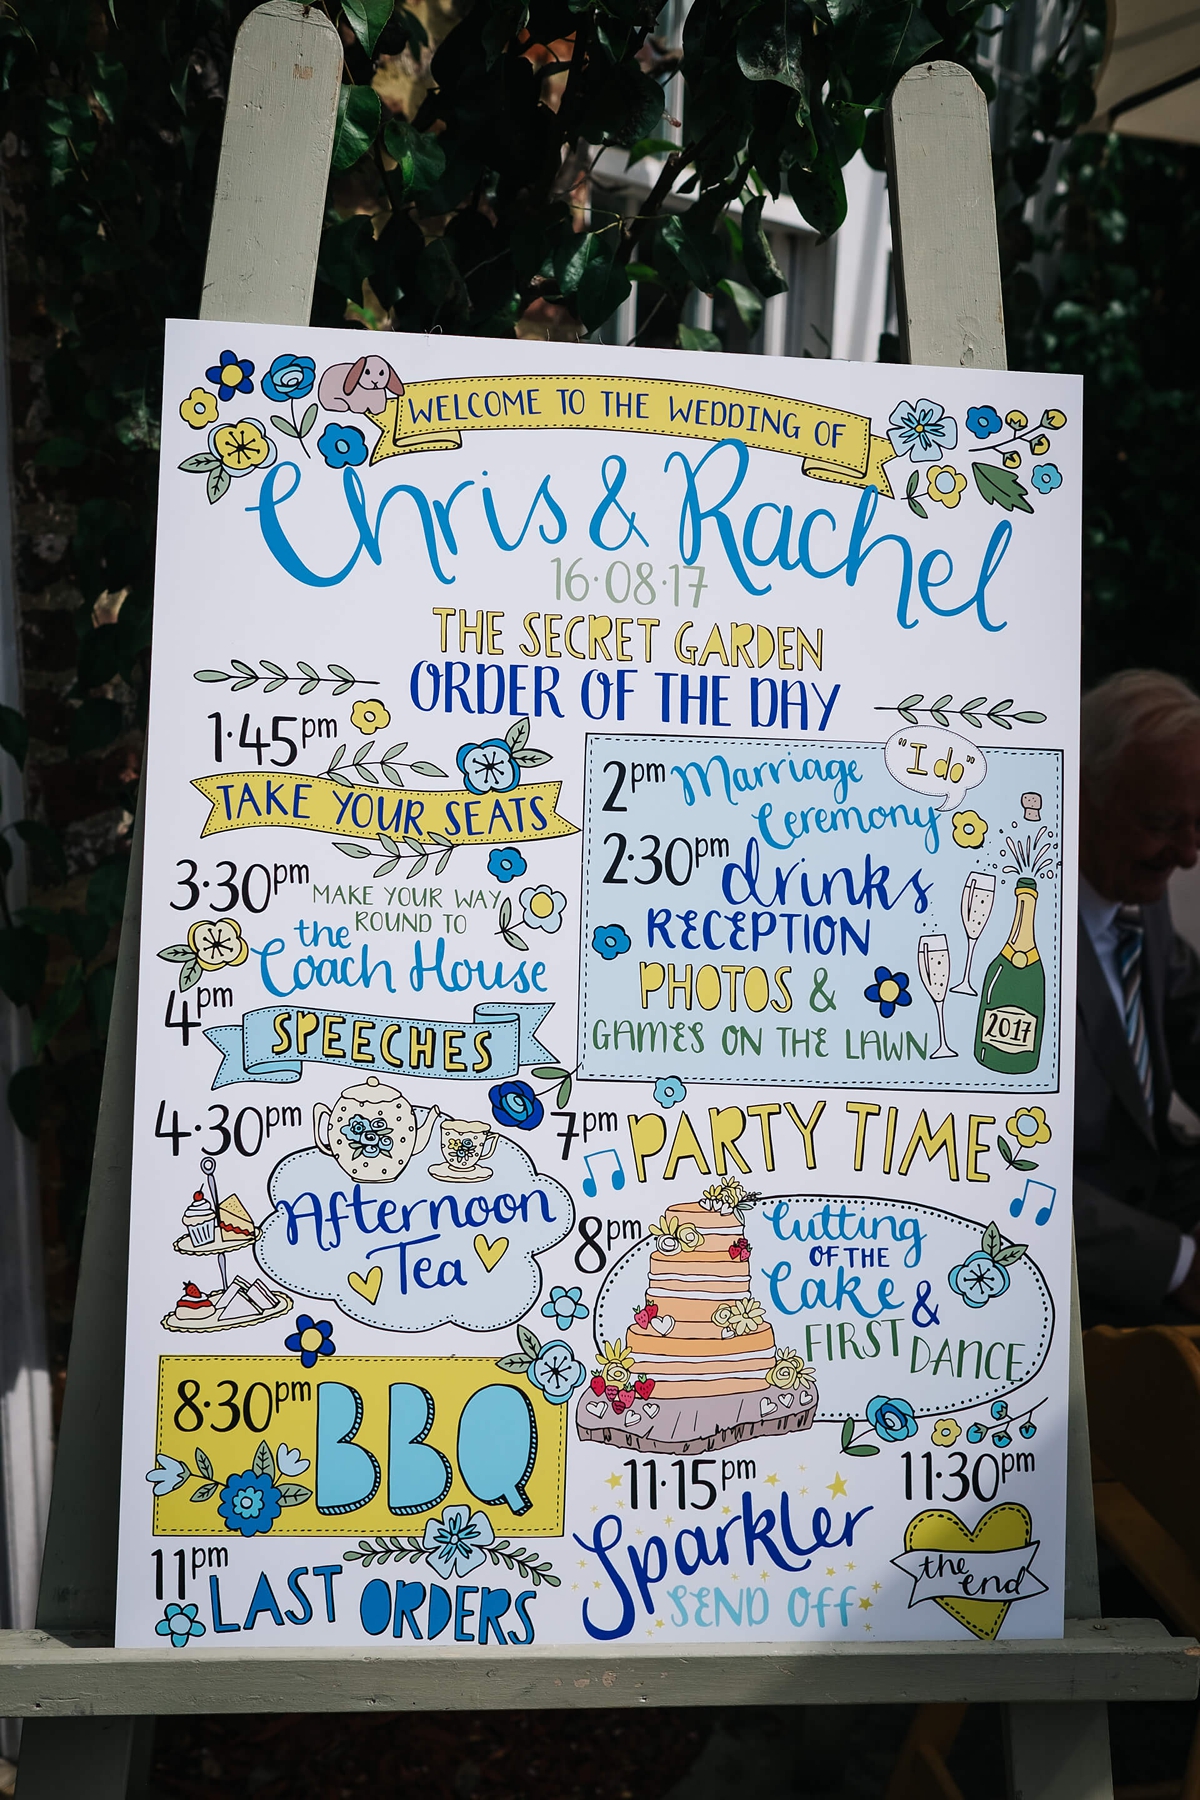 WELCOME TO THE WEDDING OF
Chris & Rachel
16·08·17
THE SECRET GARDEN
ORDER OF THE DAY
1·45pm
TAKE YOUR SEATS
"I do"
2pm Marriage
Ceremony
2·30pm drinks
RECEPTION
PHOTOS &
GAMES ON THE LAWN
2017
3·30pm MAKE YOUR WAY
ROUND TO
the
Coach House
4pm
SPEECHES
4·30pm
Afternoon
Tea
7pm PARTY TIME
8pm Cutting
OF THE
Cake &
FIRST DANCE
8·30pm BBQ
11pm LAST ORDERS
11·15pm
Sparkler
SEND OFF
11·30pm
the
end